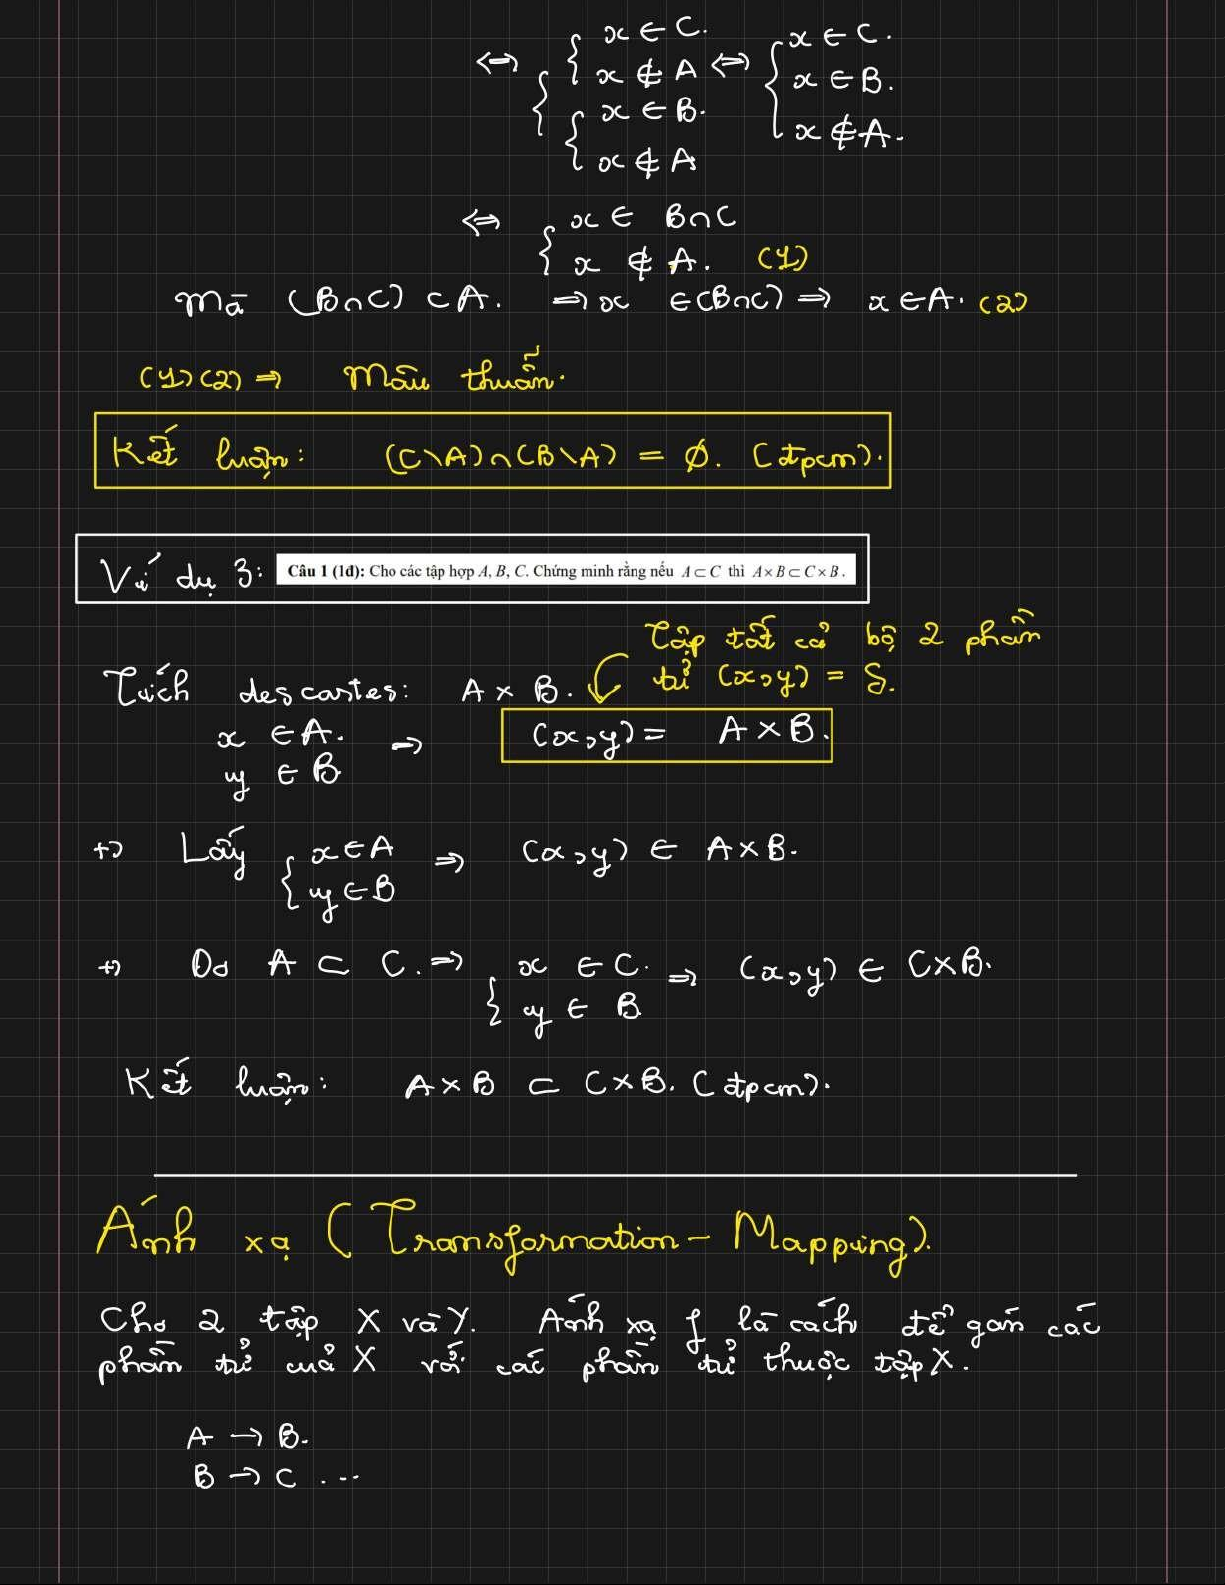 ⇔ { { x ∈ C. x ∉ A { x ∈ B. x ∉ A ⇔ { x ∈ C. x ∈ B. x ∉ A.
⇔ { x ∈ B∩C
x ∉ A. (1)
Mà (B∩C) ⊂ A. ⇒ x ∈ (B∩C) ⇒ x ∈ A. (2)
(1)(2) ⇒ Mâu thuẫn.
Kết luận: (C\A)∩(B\A) = ∅. (đpcm).
Ví dụ 3: Câu 1 (1đ): Cho các tập hợp A, B, C. Chứng minh rằng nếu A ⊂ C thì A×B ⊂ C×B.
Tập tất cả bộ 2 phần
tử (x,y) = S.
Tích descartes: A × B.
x ∈ A.
y ∈ B
⇒ (x,y) = A × B.
+) Lấy { x ∈ A
y ∈ B
⇒ (x,y) ∈ A×B.
+) Do A ⊂ C. ⇒ { x ∈ C.
y ∈ B
⇒ (x,y) ∈ C×B.
Kết luận: A×B ⊂ C×B. (đpcm).
Ánh xạ (Transformation - Mapping).
Cho 2 tập X và Y. Ánh xạ f là cách để gán các
phần tử của X với các phần tử thuộc tập X.
A → B.
B → C ...